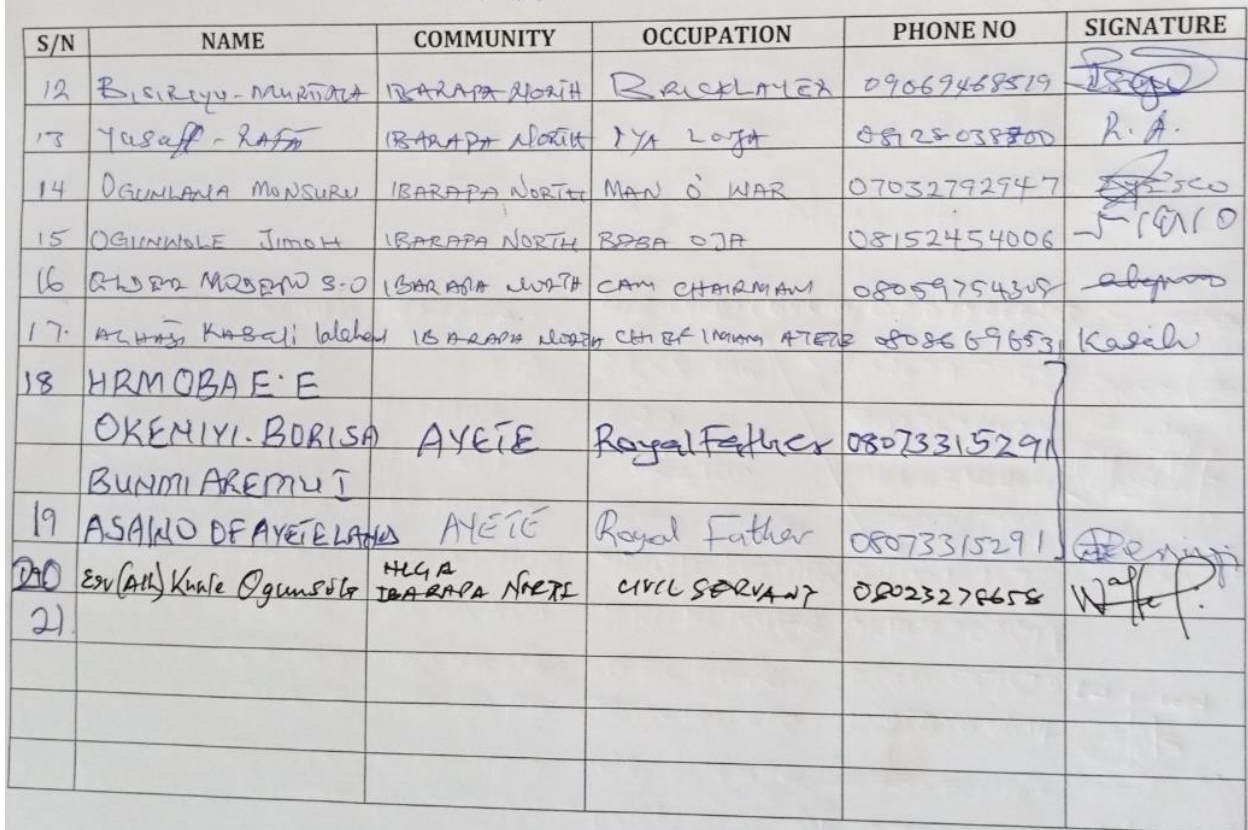 S/N NAME COMMUNITY OCCUPATION PHONE NO SIGNATURE
12 BISIRIYU-MURITALA IBARAPA NORTH BRICKLAYER 09069468519
13 Yusaff-RAFA IBARAPA NORTH IYA LOJA R.A.
14 OGUNLANA MONSURU IBARAPA NORTH MAN O' WAR 07032792947
15 OGUNWOLE JIMOH IBARAPA NORTH BABA OJA 08152454006
16 ELDER S.O IBARAPA NORTH CAN CHAIRMAN 08059754308
17. ALHAJI KASALI IBARAPA NORTH CHIEF IMAM AYETE 8086696531 Kasali
18 HRM OBA E.E
OKENIYI.BORISA AYETE Royal Father 08073315291
BUNMI AREMU I
19 ASAWO OF AYETELAND AYETE Royal Father 08073315291
20 Kunle Ogunsola HLGA IBARAPA NORTH CIVIL SERVANT 08023278658
21.